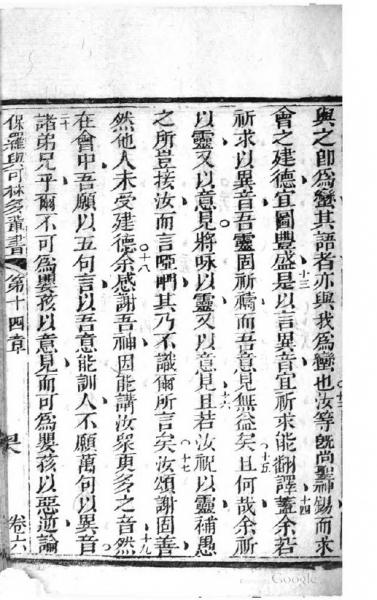 與之卽為蠻其語者亦與我為蠻也十二汝等旣尚聖神錫而求
會之建德宜圖豐盛十三是以言異音宜祈求能翻譯十四蓋余若
祈求以異音吾靈固祈禱而吾意見無益矣十五且何哉余祈
以靈又以意見將咏以靈又以意見十六且若汝祝以靈補愚
之所豈接汝而言啞們其乃不識爾所言矣十七汝頌謝固善
然他人未受建德十八余感謝吾神因能講汝衆更多之音十九然
在會中吾願以五句言以吾意能訓人不願萬句以異音
二十諸弟兄乎爾不可為嬰孩以意見而可為嬰孩以惡逆論
保羅與可林多輩書 第十四章 卷六
Google